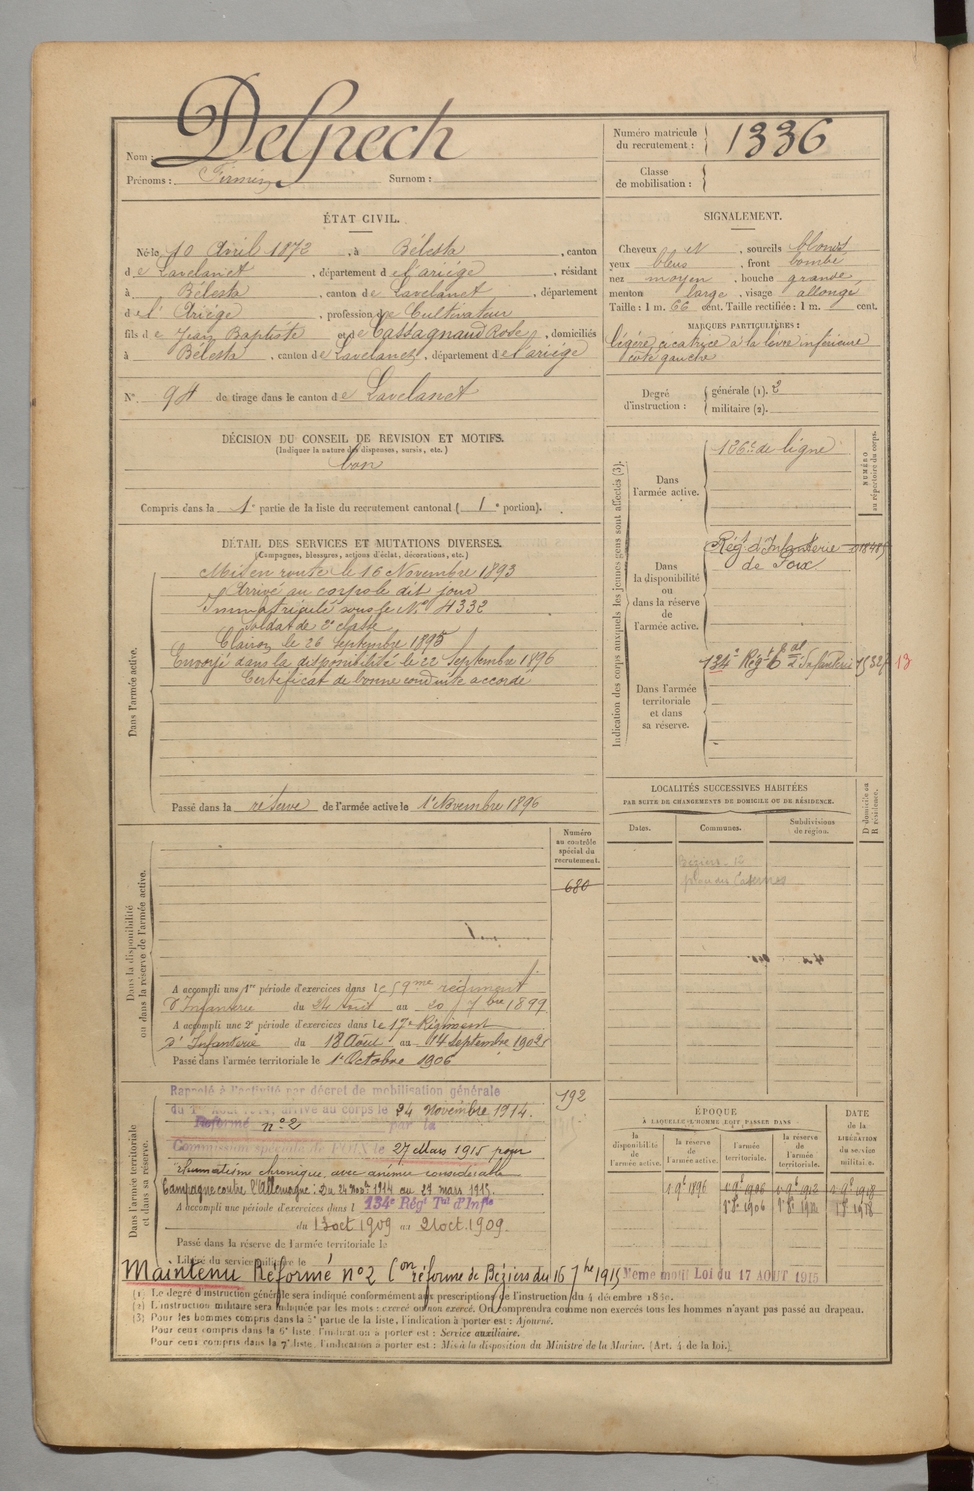 Nom : Delpech
Prénoms : Firmin Surnom :
Numéro matricule du recrutement : 1336
Classe de mobilisation :
ÉTAT CIVIL.
Né le 10 Avril 1872, à Bélesta, canton
de Lavelanet, département de l'ariège, résidant
à Bélesta, canton de Lavelanet, département
de l'Ariège, profession de Cultivateur
fils de Jean Baptiste et de Cassagnaud Rose, domiciliés
à Bélesta, canton de Lavelanet, département de l'ariège
N° 94 de tirage dans le canton de Lavelanet
SIGNALEMENT.
Cheveux et, sourcils blonds
yeux bleus, front bombé
nez moyen, bouche grande,
menton large, visage allongé
Taille : 1 m. 66 cent. Taille rectifiée : 1 m. cent.
MARQUES PARTICULIÈRES :
légère cicatrice à la lèvre inférieure
côté gauche
Degré d'instruction : générale (1). 2
militaire (2).
DÉCISION DU CONSEIL DE REVISION ET MOTIFS.
(Indiquer la nature des dispenses, sursis, etc.)
bon
Compris dans la 1e partie de la liste du recrutement cantonal ( 1e portion).
DÉTAIL DES SERVICES ET MUTATIONS DIVERSES.
(Campagnes, blessures, actions d'éclat, décorations, etc.)
Dans l'armée active.
Mis en route le 16 Novembre 1893
Arrivé au corps le dit jour
Immatriculé sous le N° 4332
Soldat de 2e classe
Clairon le 26 Septembre 1895
Envoyé dans la disponibilité le 22 Septembre 1896
Certificat de bonne conduite accordé
Passé dans la réserve de l'armée active le 1e Novembre 1896
Indication des corps auxquels les jeunes gens sont affectés (3).
NUMÉRO
au répertoire du corps.
Dans l'armée active.
126e de ligne
Dans la disponibilité ou dans la réserve de l'armée active.
Régt d'Infanterie
de Foix
Dans l'armée territoriale et dans sa réserve.
134e Régt tal d'Infanterie 13
LOCALITÉS SUCCESSIVES HABITÉES
PAR SUITE DE CHANGEMENTS DE DOMICILE OU DE RÉSIDENCE.
D domicile ou
R résidence.
Dates. Communes. Subdivisions de région.
Béziers
Casernes
Numéro au contrôle spécial du recrutement.
680
Dans la disponibilité
ou dans la réserve de l'armée active.
A accompli une 1re période d'exercices dans le 59me régiment
d'Infanterie du 24 Août au 20 7bre 1899
A accompli une 2e période d'exercices dans le 17e Régiment
d'Infanterie du 18 Août au 14 septembre 1902
Passé dans l'armée territoriale le 1e Octobre 1906
192
Dans l'armée territoriale
et dans sa réserve.
Rappelé à l'activité par décret de mobilisation générale
du 1er Août 1914, arrivé au corps le 24 novembre 1914.
Réformé n° 2 par la
Commission spéciale de FOIX le 27 Mars 1915 pour
Rhumatisme chronique avec anémie considérable
Campagne contre l'Allemagne : Du 24 Nov. 1914 au 27 mars 1915.
A accompli une période d'exercices dans l 134e Régt Tal d'Inftie
du 13 oct. 1909 au 21 oct. 1909.
Passé dans la réserve de l'armée territoriale le
Libéré du service militaire le
Maintenu Réformé n° 2 Con réforme de Béziers du 16 7bre 1915 Meme motif Loi du 17 AOUT 1915
ÉPOQUE
À LAQUELLE L'HOMME DOIT PASSER DANS
la disponibilité de l'armée active. la réserve de l'armée active. l'armée territoriale. la réserve de l'armée territoriale.
DATE de la LIBÉRATION du service militaire.
1 9e 1896 1 9e 1906 1 9e 1912 1 9e 1918
1e 8e 1906 1e 8e 1912 1e 8e 1918
(1) Le degré d'instruction générale sera indiqué conformément aux prescriptions de l'instruction du 4 décembre 1889.
(2) L'instruction militaire sera indiquée par les mots : exercé ou non exercé. On comprendra comme non exercés tous les hommes n'ayant pas passé au drapeau.
(3) Pour les hommes compris dans la 5e partie de la liste, l'indication à porter est : Ajourné.
Pour ceux compris dans la 6e liste, l'indication à porter est : Service auxiliaire.
Pour ceux compris dans la 7e liste, l'indication à porter est : Mis à la disposition du Ministre de la Marine. (Art. 4 de la loi.)